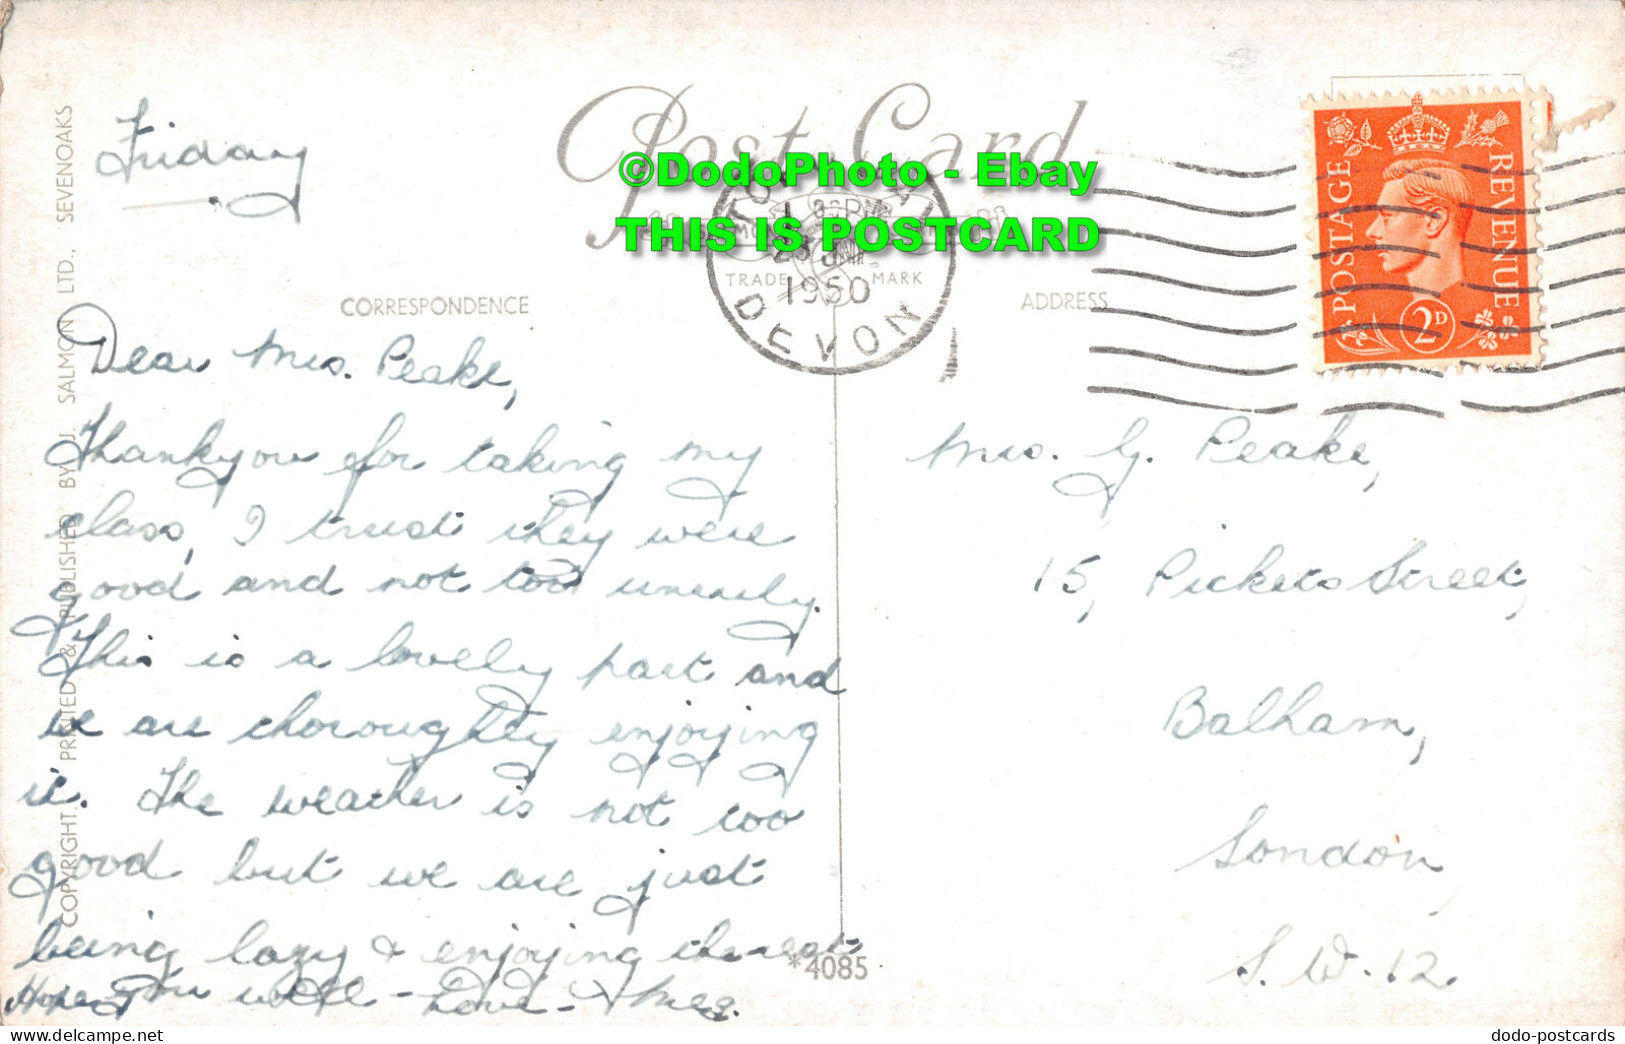 Friday
Post Card
©DodoPhoto - Ebay
THIS IS POSTCARD
TRADE MARK
1950
DEVON
POSTAGE REVENUE
2D
CORRESPONDENCE
ADDRESS
Dear Mrs. Peake,
Thankyou for taking my
class, I trust they were
good and not too unruly.
This is a lovely part and
we are thoroughly enjoying
it. The weather is not too
good but we are just
being lazy & enjoying the rest.
Hope you well - Love -
Mrs. G. Peake,
15, Pickets Street,
Balham,
London
S.W.12.
*4085
COPYRIGHT, PRINTED & PUBLISHED BY J. SALMON LTD., SEVENOAKS
dodo-postcards